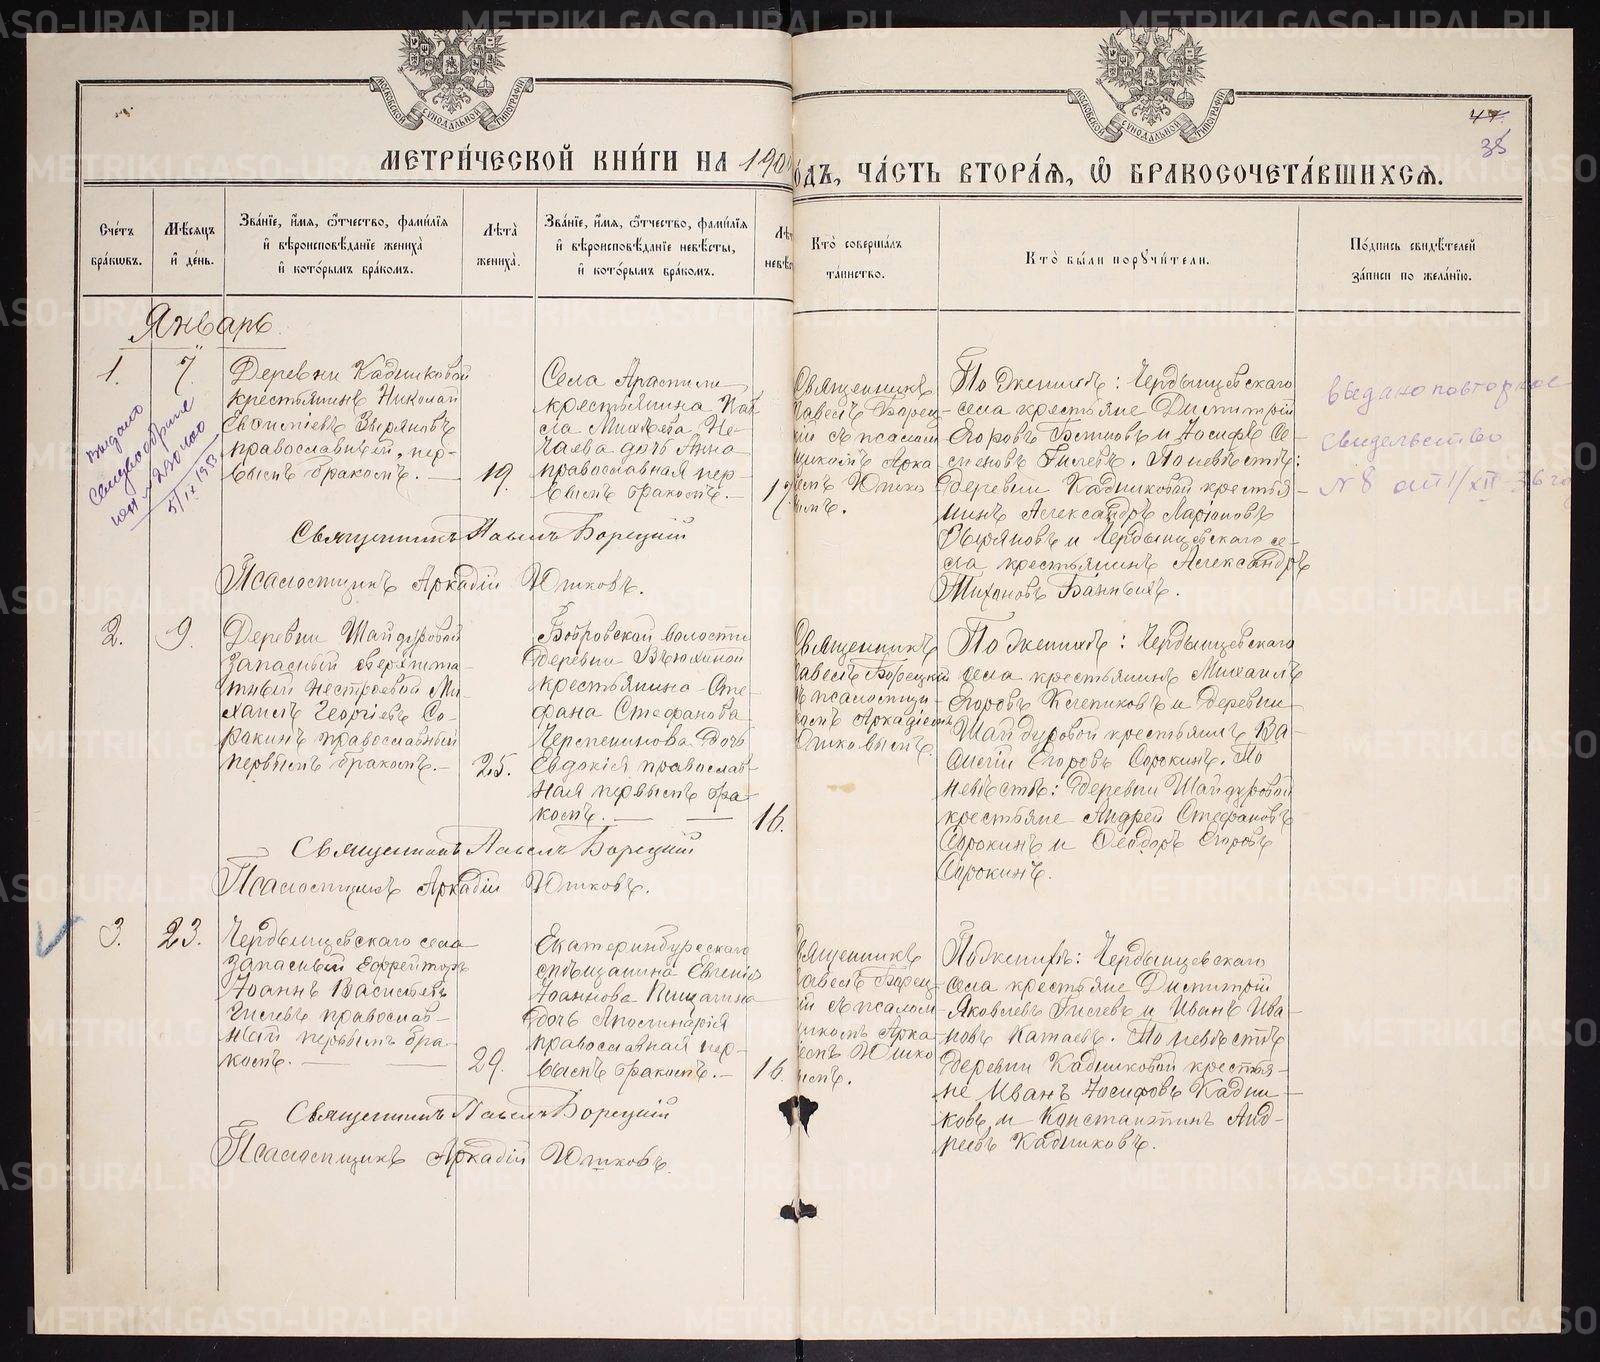 МЕТРИ́ЧЕСКОЙ КНИ́ГИ НА 190
ОДЪ, ЧА́СТЬ ВТОРА́Ѧ, Ѽ БРАКОСОЧЕТА́ВШИХСѦ.
47.
38
Сче́тъ
бра́кѡвъ.
Мѣ́сѧцъ
и҆ де́нь.
Зва́нїе, и҆́мѧ, ѻ҆́тчество, фами́лїѧ
и҆ вѣроисповѣ́данїе жениха̀
и҆ кото́рымъ бра́комъ.
Лѣ́та̀
жениха̀.
Зва́нїе, и҆́мѧ, ѻ҆́тчество, фами́лїѧ
и҆ вѣроисповѣ́данїе невѣ́сты,
и҆ кото́рымъ бра́комъ.
Кто̀ соверша́лъ
та́инство.
Кто̀ бы́ли порꙋчи́тели.
По́дпись свидѣ́телей
за́писи по жела́нїю.
Январь
1.
7.
Деревни Кадниковой
крестьянинъ Николай
Евсигніевъ Зыряновъ
православный, пер-
вымъ бракомъ.
19.
Села Арамили
крестьянина Пав
ла Михаева Не-
чаева дочь Анна
православная пер-
вымъ бракомъ.
17
Священникъ
Павелъ Борец-
ій съ псалом
щикомъ Арка
емъ Юшко
ымъ.
По женихѣ: Чердынцевскаго
села крестьяне Димитрій
Егоровъ Ботиновъ и Іосифъ Се-
меновъ Гилевъ. По невѣстѣ:
деревни Кадниковой крестья-
нинъ Александръ Ларіоновъ
Зыряновъ и Чердынцевскаго се-
ла крестьянинъ Александръ
Тихоновъ Банныхъ.
выдано повторное
свидетельство
N 8 от 1/XII-36 го
Выдано
5/IX 1933
Священникъ Павелъ Борецкій
Псаломщикъ Аркадій Юшковъ.
2.
9.
Деревни Шайдуровой
запасный сверхшта-
тный нестроевой Ми-
хаилъ Георгіевъ Со-
рокинъ православный
первымъ бракомъ.
25.
Бобровской волости
деревни Вьюхиной
крестьянина Сте-
фана Стефанова
Черепенинова дочь
Евдокія православ-
ная первымъ бра-
комъ.
16.
Священникъ
Павелъ Борецкій
ъ псаломщи-
комъ Аркадіемъ
Юшковымъ.
По женихѣ: Чердынцевскаго
села крестьянинъ Михаилъ
Егоровъ Клепиковъ и деревни
Шайдуровой крестьянинъ Ва-
силій Егоровъ Сорокинъ. По
невѣстѣ: деревни Шайдуровой
крестьяне Андрей Стефановъ
Сорокинъ и Феодоръ Егоровъ
Сорокинъ.
Священникъ Павелъ Борецкій
Псаломщикъ Аркадій Юшковъ.
3.
23.
Чердынцевскаго села
запасный ефрейторъ
Іоаннъ Васильевъ
Гилевъ православ-
ный первымъ бра-
комъ.
29.
Екатеринбургскаго
мѣщанина Евгенія
Іоаннова Пищагина
дочь Аполинарія
православная пер-
вымъ бракомъ.
16.
вященникъ
авелъ Борец-
ій съ псалом-
щикомъ Арка-
емъ Юшко
ымъ.
По женихѣ: Чердынцевскаго
села крестьяне Димитрій
Яковлевъ Гилевъ и Иванъ Ива-
новъ Катаевъ. По невѣстѣ
деревни Кадниковой крестья-
не Иванъ Іосифовъ Кадни-
ковъ и Константинъ Анд-
реевъ Кадниковъ.
Священникъ Павелъ Борецкій
Псаломщикъ Аркадій Юшковъ.
METRIKI.GASO-URAL.RU